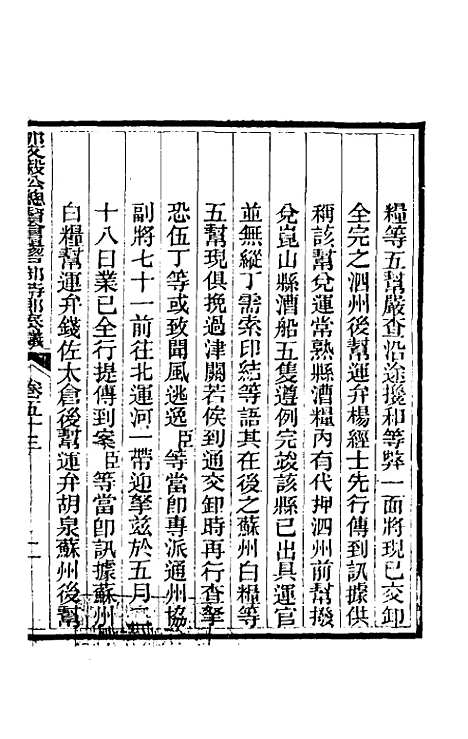 糧等五幫嚴查沿途攙和等弊一面將現已交卸
全完之泗州後幫運弁楊經士先行傳到訊據供
稱該幫兌運常熟縣漕糧內有代押泗州前幫撥
兌崑山縣漕船五隻遵例完竣該縣已出具運官
並無縱丁需索印結等語其在後之蘇州白糧等
五幫現俱挽過津關若俟到通交卸時再行查拏
恐伍丁等或致聞風逃逸臣等當卽專派通州協
副將七十一前往北運河一帶迎拏茲於五月二
十八日業已全行提傳到案臣等當卽訊據蘇州
白糧幫運弁錢佐太倉後幫運弁胡泉蘇州後幫
卷五十三